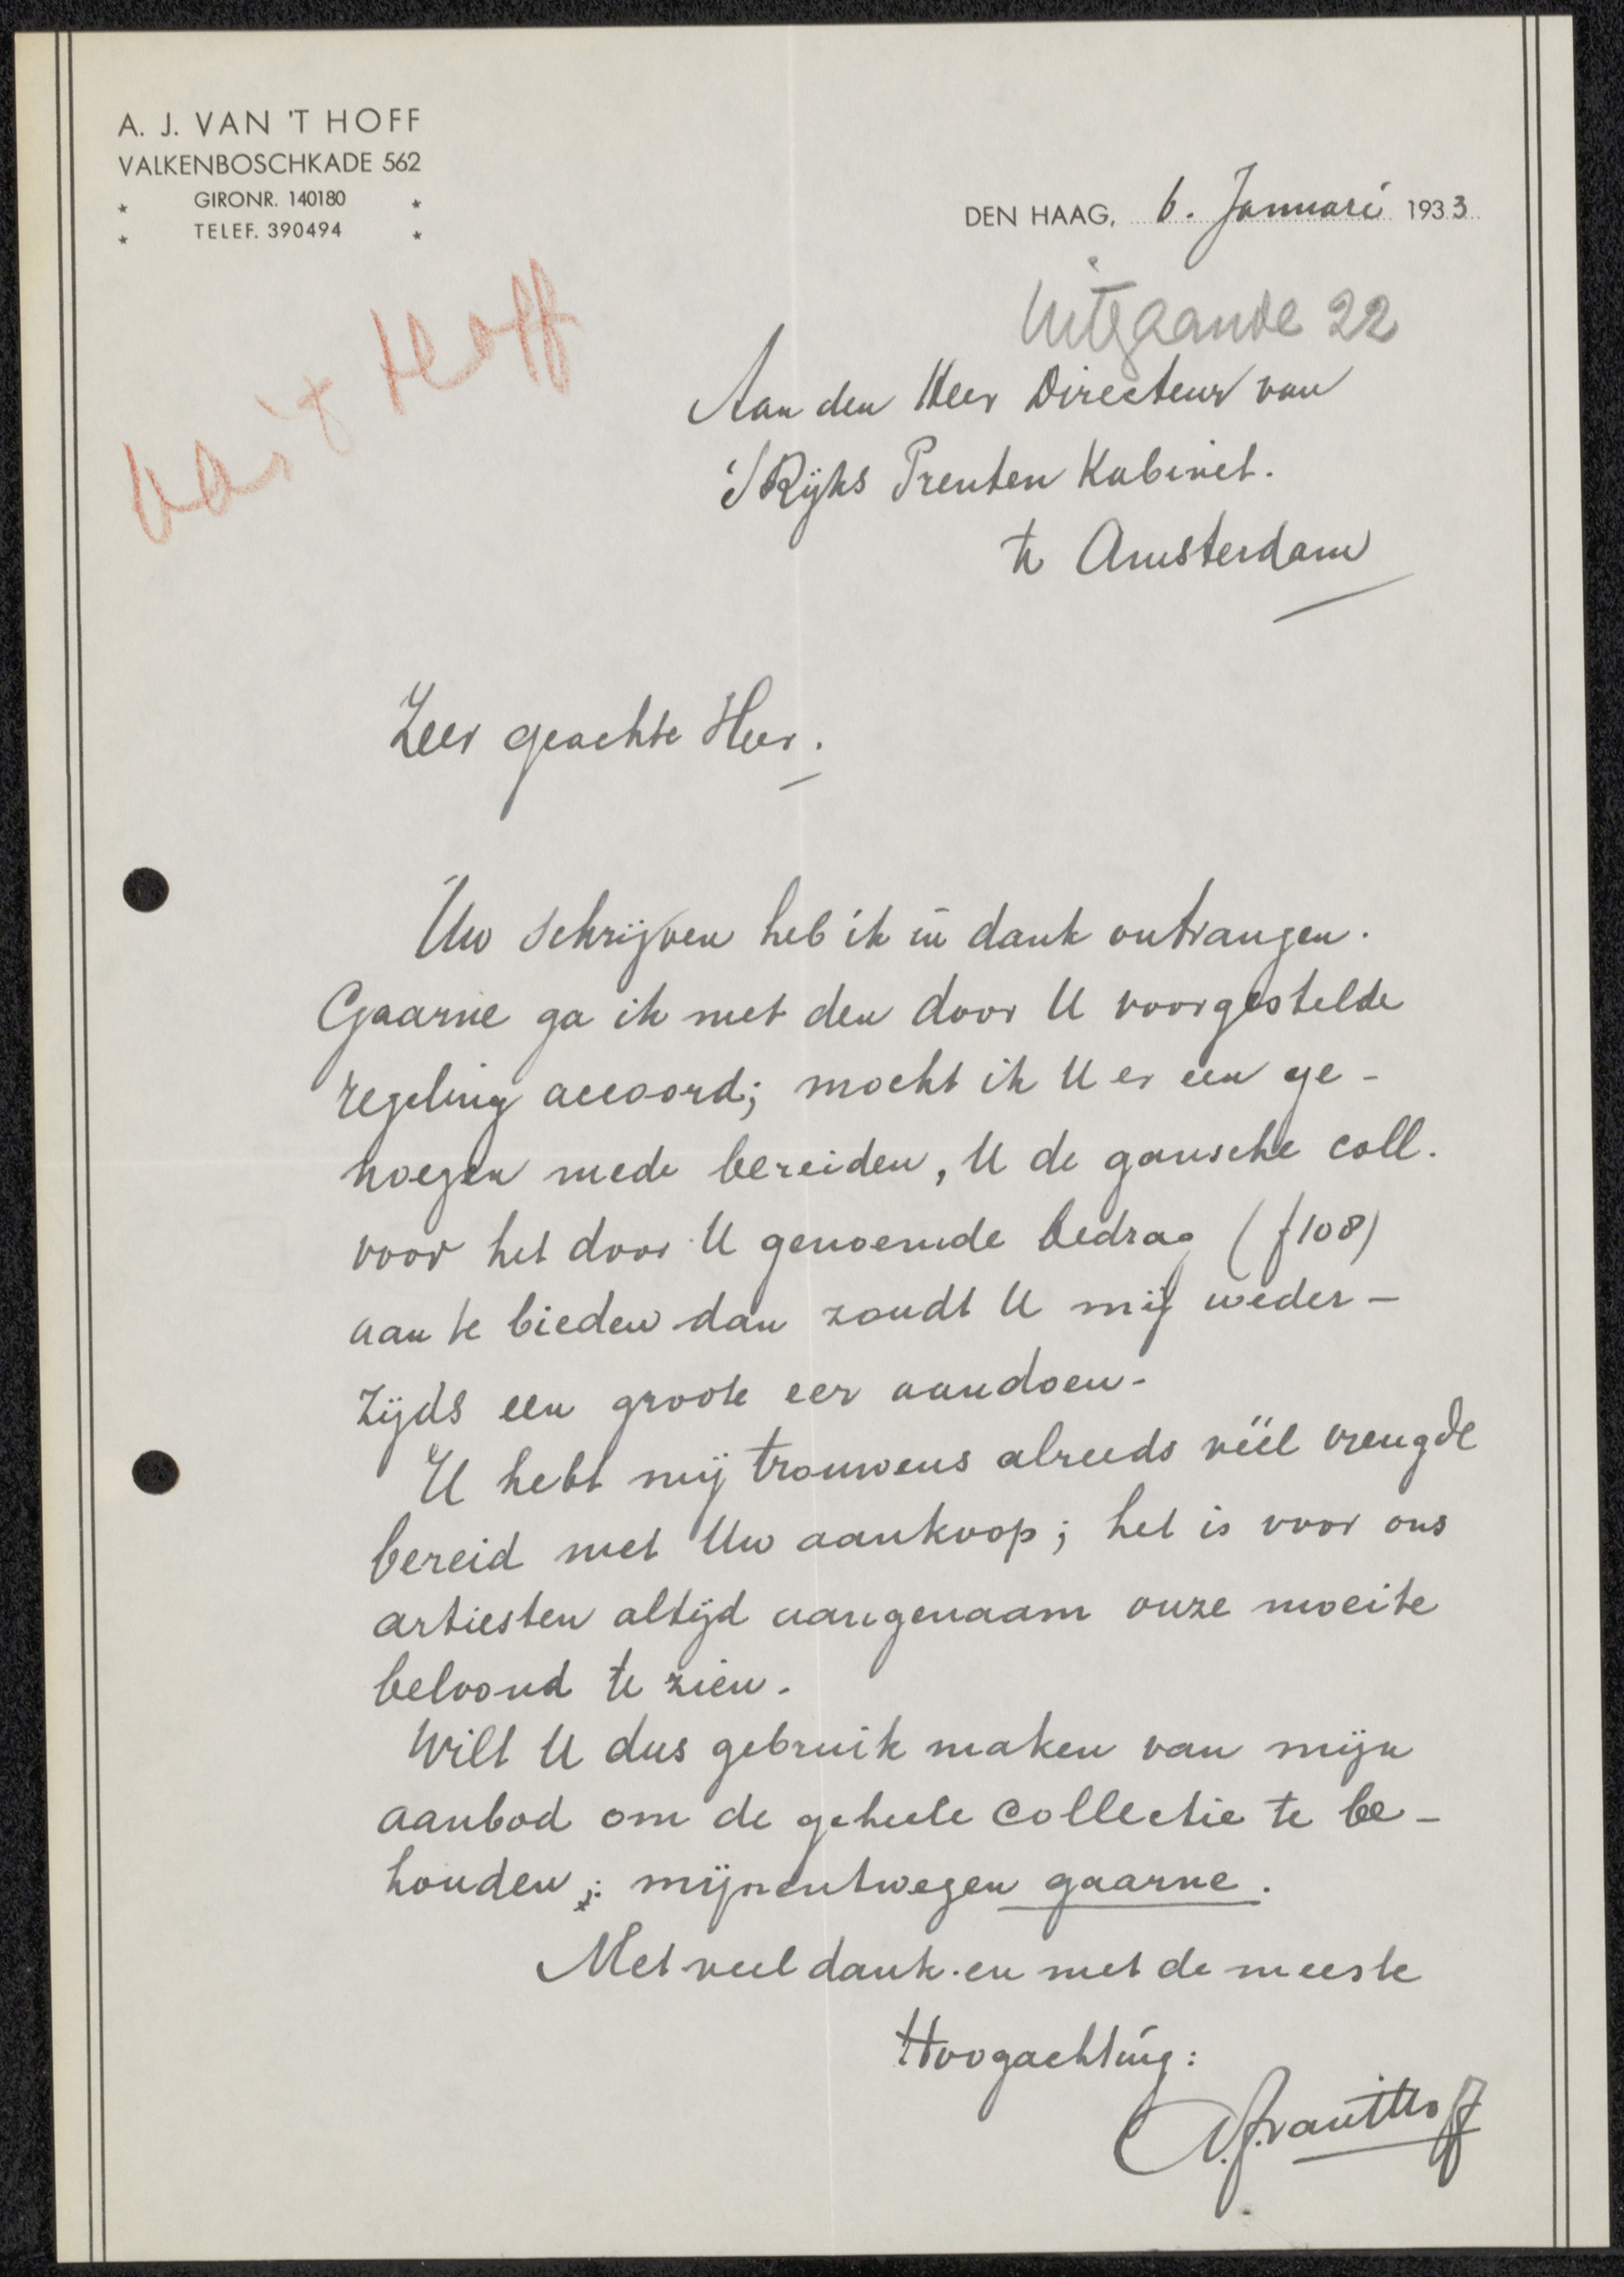 A. J. VAN 'T HOFF
VALKENBOSCHKADE 562
* GIRONR. 140180 *
* TELEF. 390494 *
DEN HAAG, 6. Januari 1933
Uitgaande 22
van 't Hoff
Aan den Heer Directeur van
's Rijks Prenten Kabinet.
te Amsterdam
Zeer geachte Heer.
Uw schrijven heb ik in dank ontvangen.
Gaarne ga ik met den door U voorgestelde
regeling accoord; mocht ik U er een ge-
noegen mede bereiden, U de gansche coll.
voor het door U genoemde bedrag (f108)
aan te bieden dan zoudt U mij weder-
zijds een groote eer aandoen.
U hebt mij trouwens alreeds véél vreugde
bereid met Uw aankoop; het is voor ons
artiesten altijd aangenaam onze moeite
beloond te zien.
Wilt U dus gebruik maken van mijn
aanbod om de geheele collectie te be-
houden; mijnentwegen gaarne.
Met veel dank en met de meeste
Hoogachting:
A.J. van 't Hoff